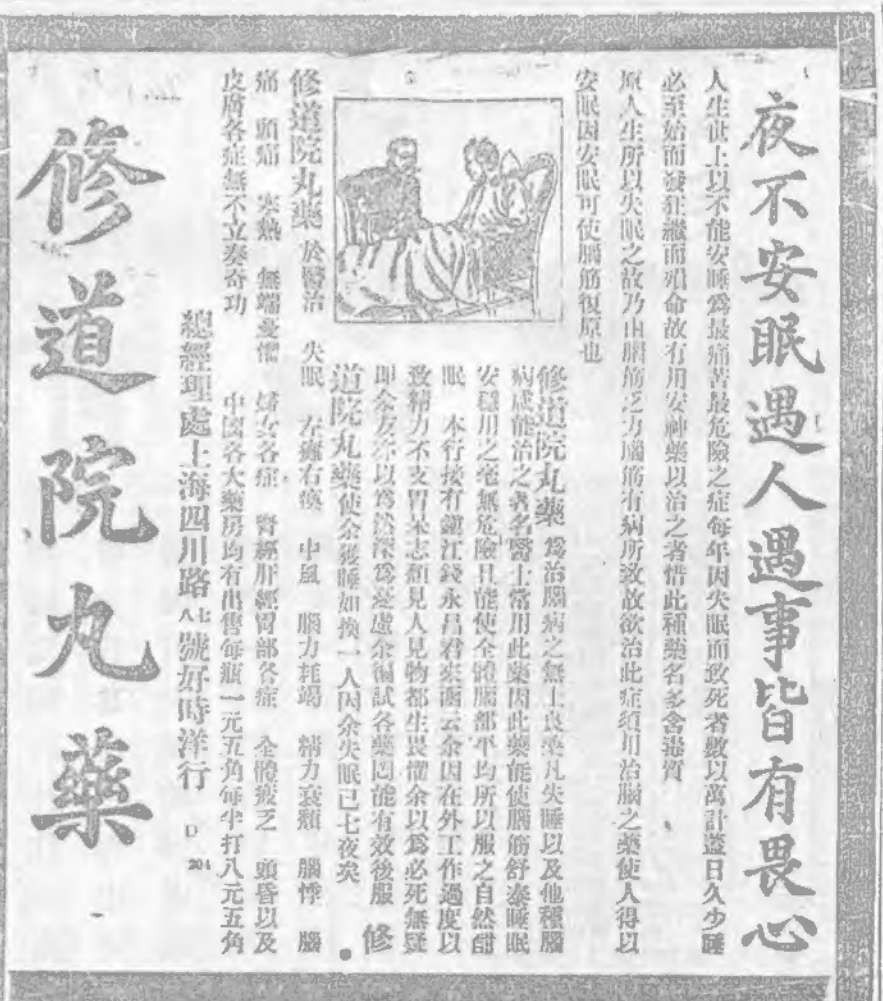 夜不安眠遇人遇事皆有畏心
人生世上以不能安睡爲最痛苦最危險之症每年因失眠而致死者數以萬計蓋日久少睡
必至始而發狂繼而殞命故有用安神藥以治之者惜此種藥名多含毒質
原人生所以失眠之故乃由腦筋乏力腦筋有病所致故欲治此症須用治腦之藥使人得以
安眠因安眠可使腦筋復原也
修道院丸藥 爲治腦病之無上良藥凡失睡以及他種腦
病咸能治之著名醫士常用此藥因此藥能使腦筋舒泰睡眠
安穩用之毫無危險且能使全體腦部平均所以服之自然酣
眠 本行接有鎭江錢永昌君來函云余因在外工作過度以
致精力不支胃呆志頹見人見物都生畏懼余以爲必死無疑
即余友亦以爲然深爲憂慮余徧試各藥罔能有效後服 修
道院丸藥使余獲睡如換一人因余失眠已七夜矣
修道院丸藥 於醫治 失眠 左癱右瘓 中風 腦力耗竭 精力衰頹 腦悸 腦
痛 頭痛 寒熱 無端憂懼 婦女各症 腎經肝經胃部各症 全體疲乏 頭昏以及
皮膚各症無不立奏奇功 中國各大藥房均有出售每瓶一元五角每半打八元五角
總經理處上海四川路八七號好時洋行 D 204
修道院丸藥